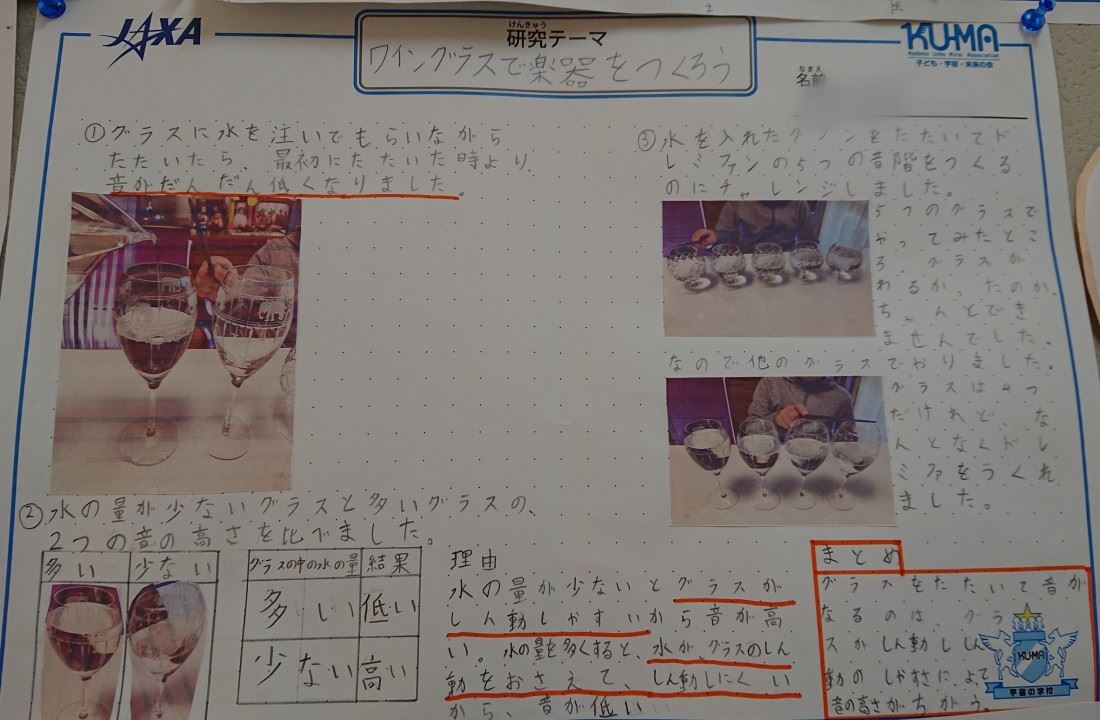 JAXA
けんきゅう
研究テーマ
ワイングラスで楽器をつくろう
KU-MA
Kodomo Uchu Mirai Association
子ども・宇宙・未来の会
なまえ
名前
①グラスに水を注いでもらいながら
たたいたら、最初にたたいた時より
音がだんだん低くなりました。
②水の量が少ないグラスと多いグラスの、
2つの音の高さを比べました。
多い 少ない
グラスの中の水の量 結果
多い 低い
少ない 高い
理由
水の量が少ないとグラスが
しん動しやすいから音が高
い。水の量を多くすると、水が、グラスのしん
動をおさえて、しん動しにくい
から、音が低い
③水を入れたグ をたたいてド
レミファンの5つの音階をつくる
のにチャレンジしました。
5つのグラスで
やってみたとこ
ろ、グラスが
わるかったのか、
ちゃんとでき
ませんでした。
なので他のグラスでやりました。
グラスは4つ
だけれど、な
んとなくドレ
ミファをつくれ
ました。
まとめ
グラスをたたいて音が
なるのは、グラ
スがしん動ししん
動のしやすさによって
音の高さがちがう。
KU-MA
宇宙の学校